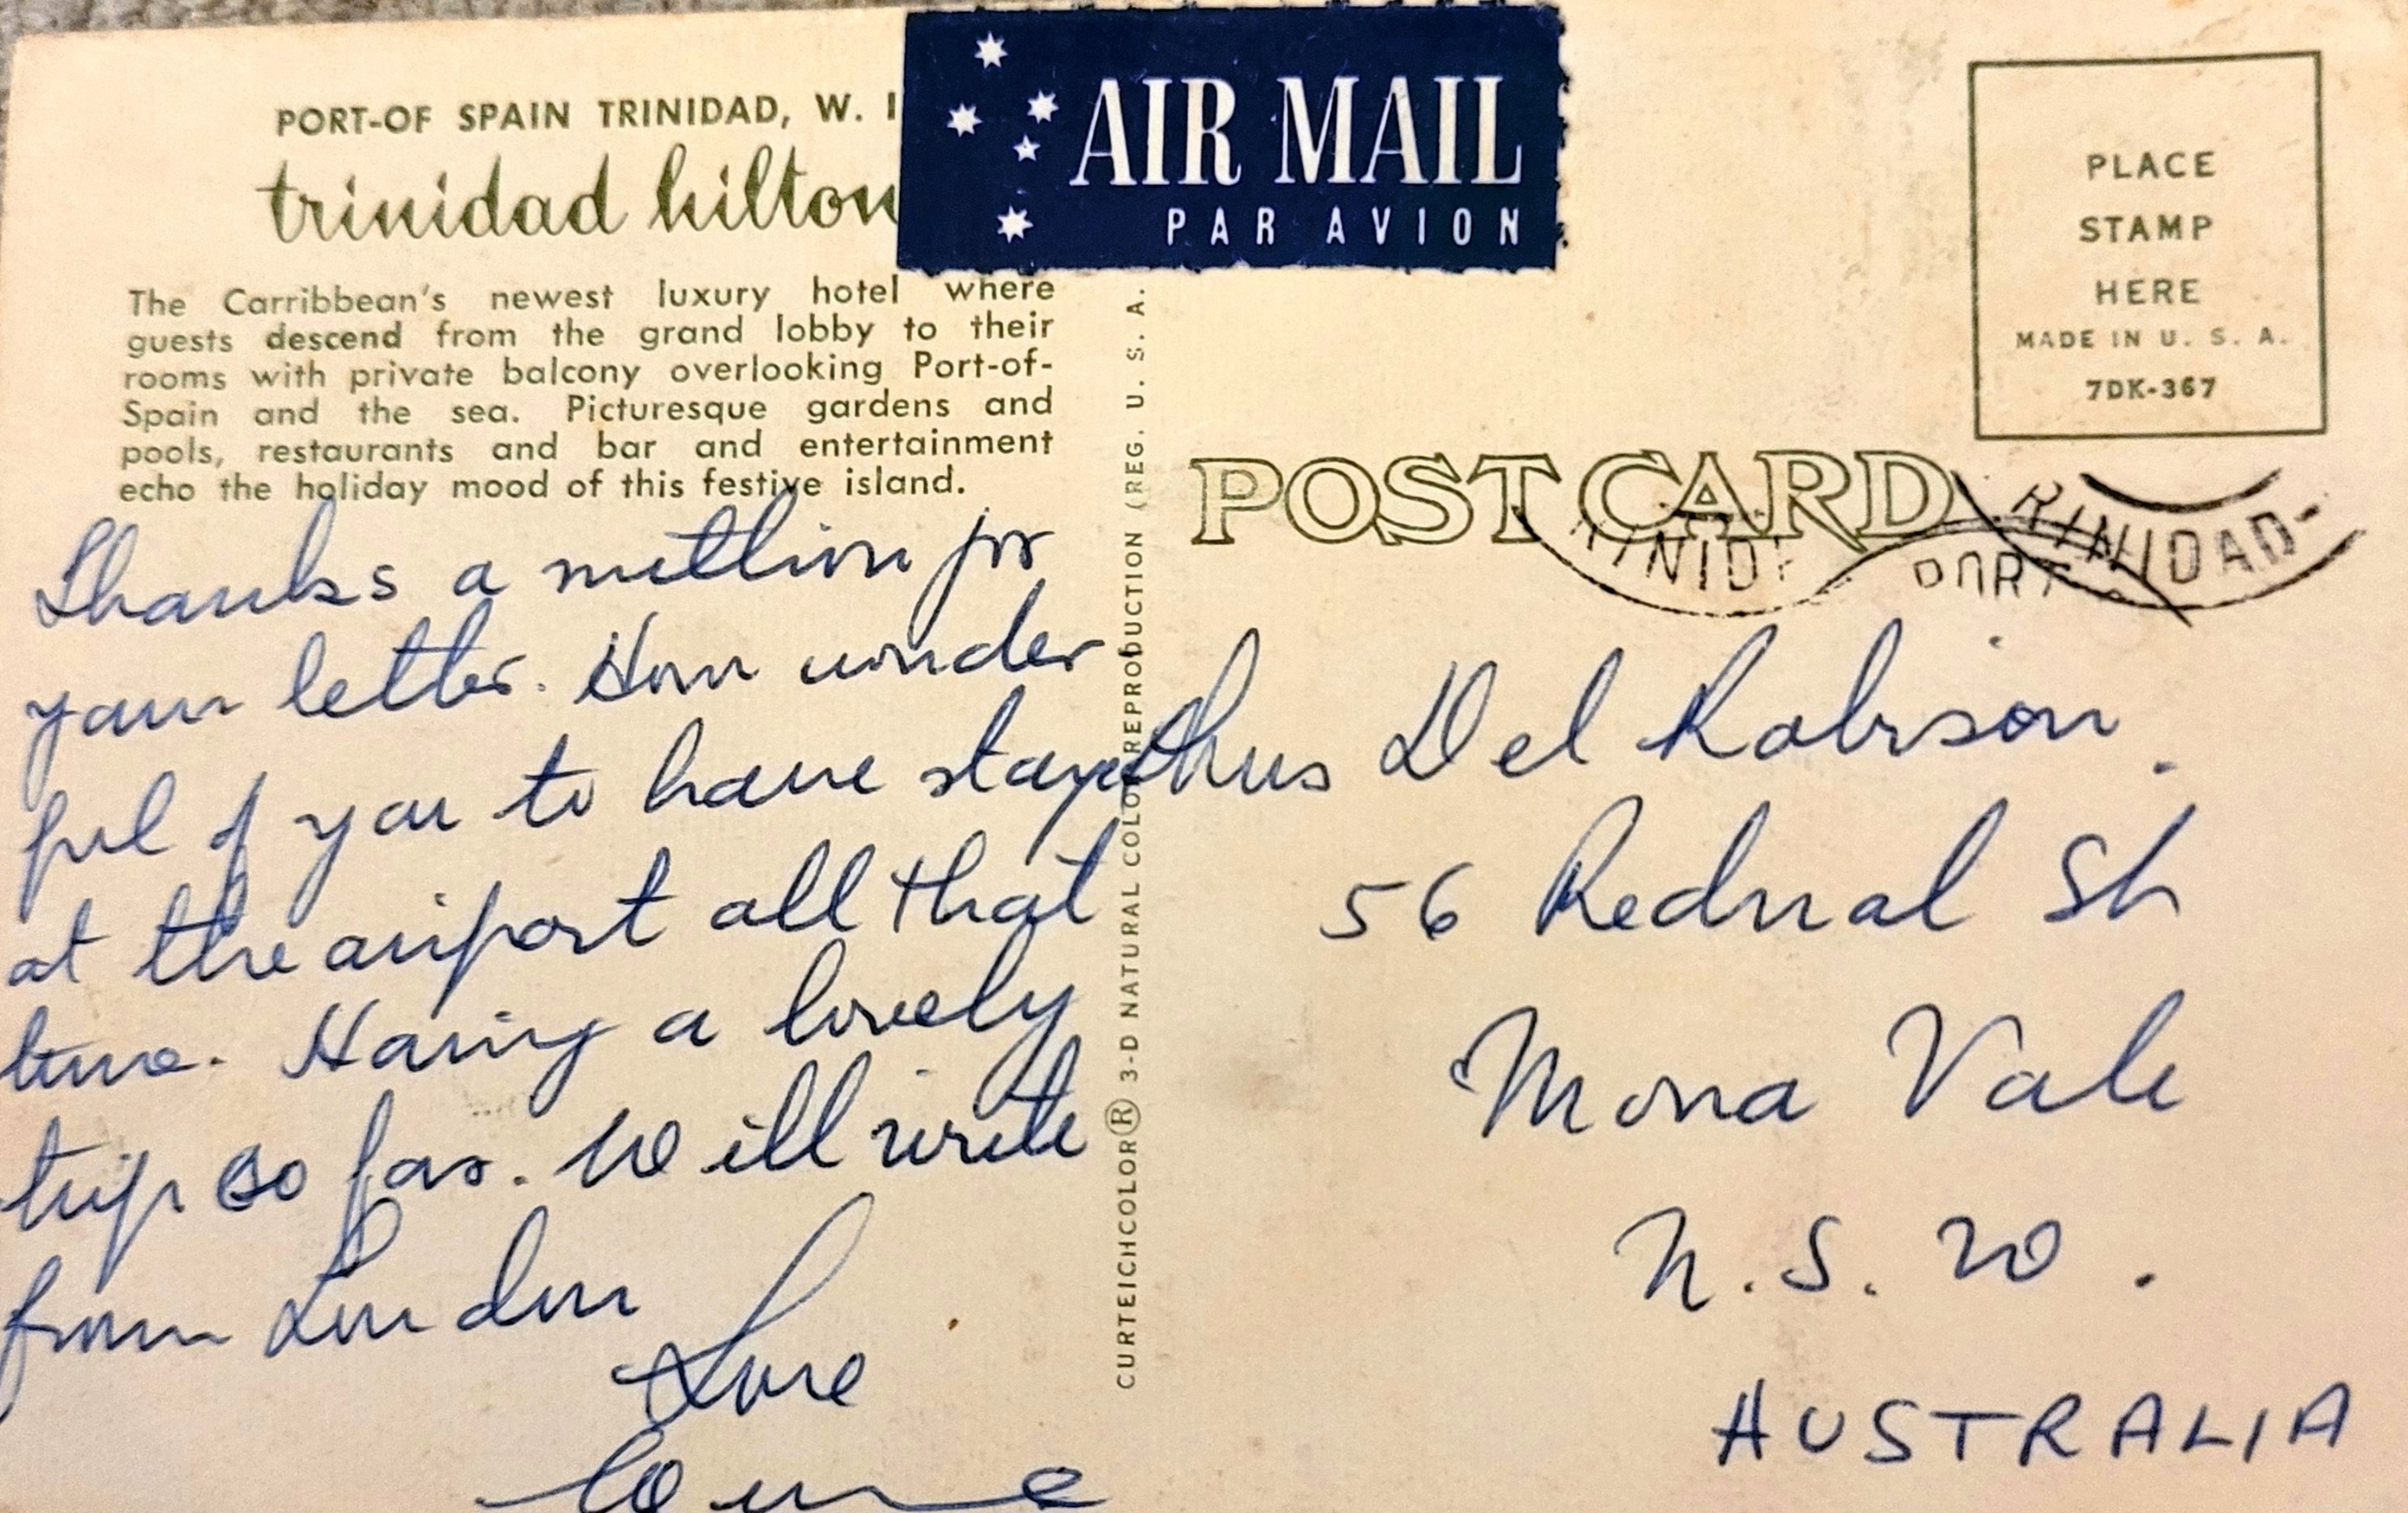 PORT-OF SPAIN TRINIDAD, W. I
trinidad hilton
The Carribbean's newest luxury hotel where
guests descend from the grand lobby to their
rooms with private balcony overlooking Port-of-
Spain and the sea. Picturesque gardens and
pools, restaurants and bar and entertainment
echo the holiday mood of this festive island.
Thanks a million for
your letter. How wonder
ful of you to have stayed
at the airport all that
time. Having a lovely
trip so far. Will write
from London
Love
AIR MAIL
PAR AVION
CURTEICHCOLOR® 3-D NATURAL COLOR REPRODUCTION (REG. U. S. A.
PLACE
STAMP
HERE
MADE IN U. S. A.
7DK-367
POST CARD
RINIDAD-
PORT
Del Robison.
56 Rednal St
Mona Vale
N.S.W.
AUSTRALIA